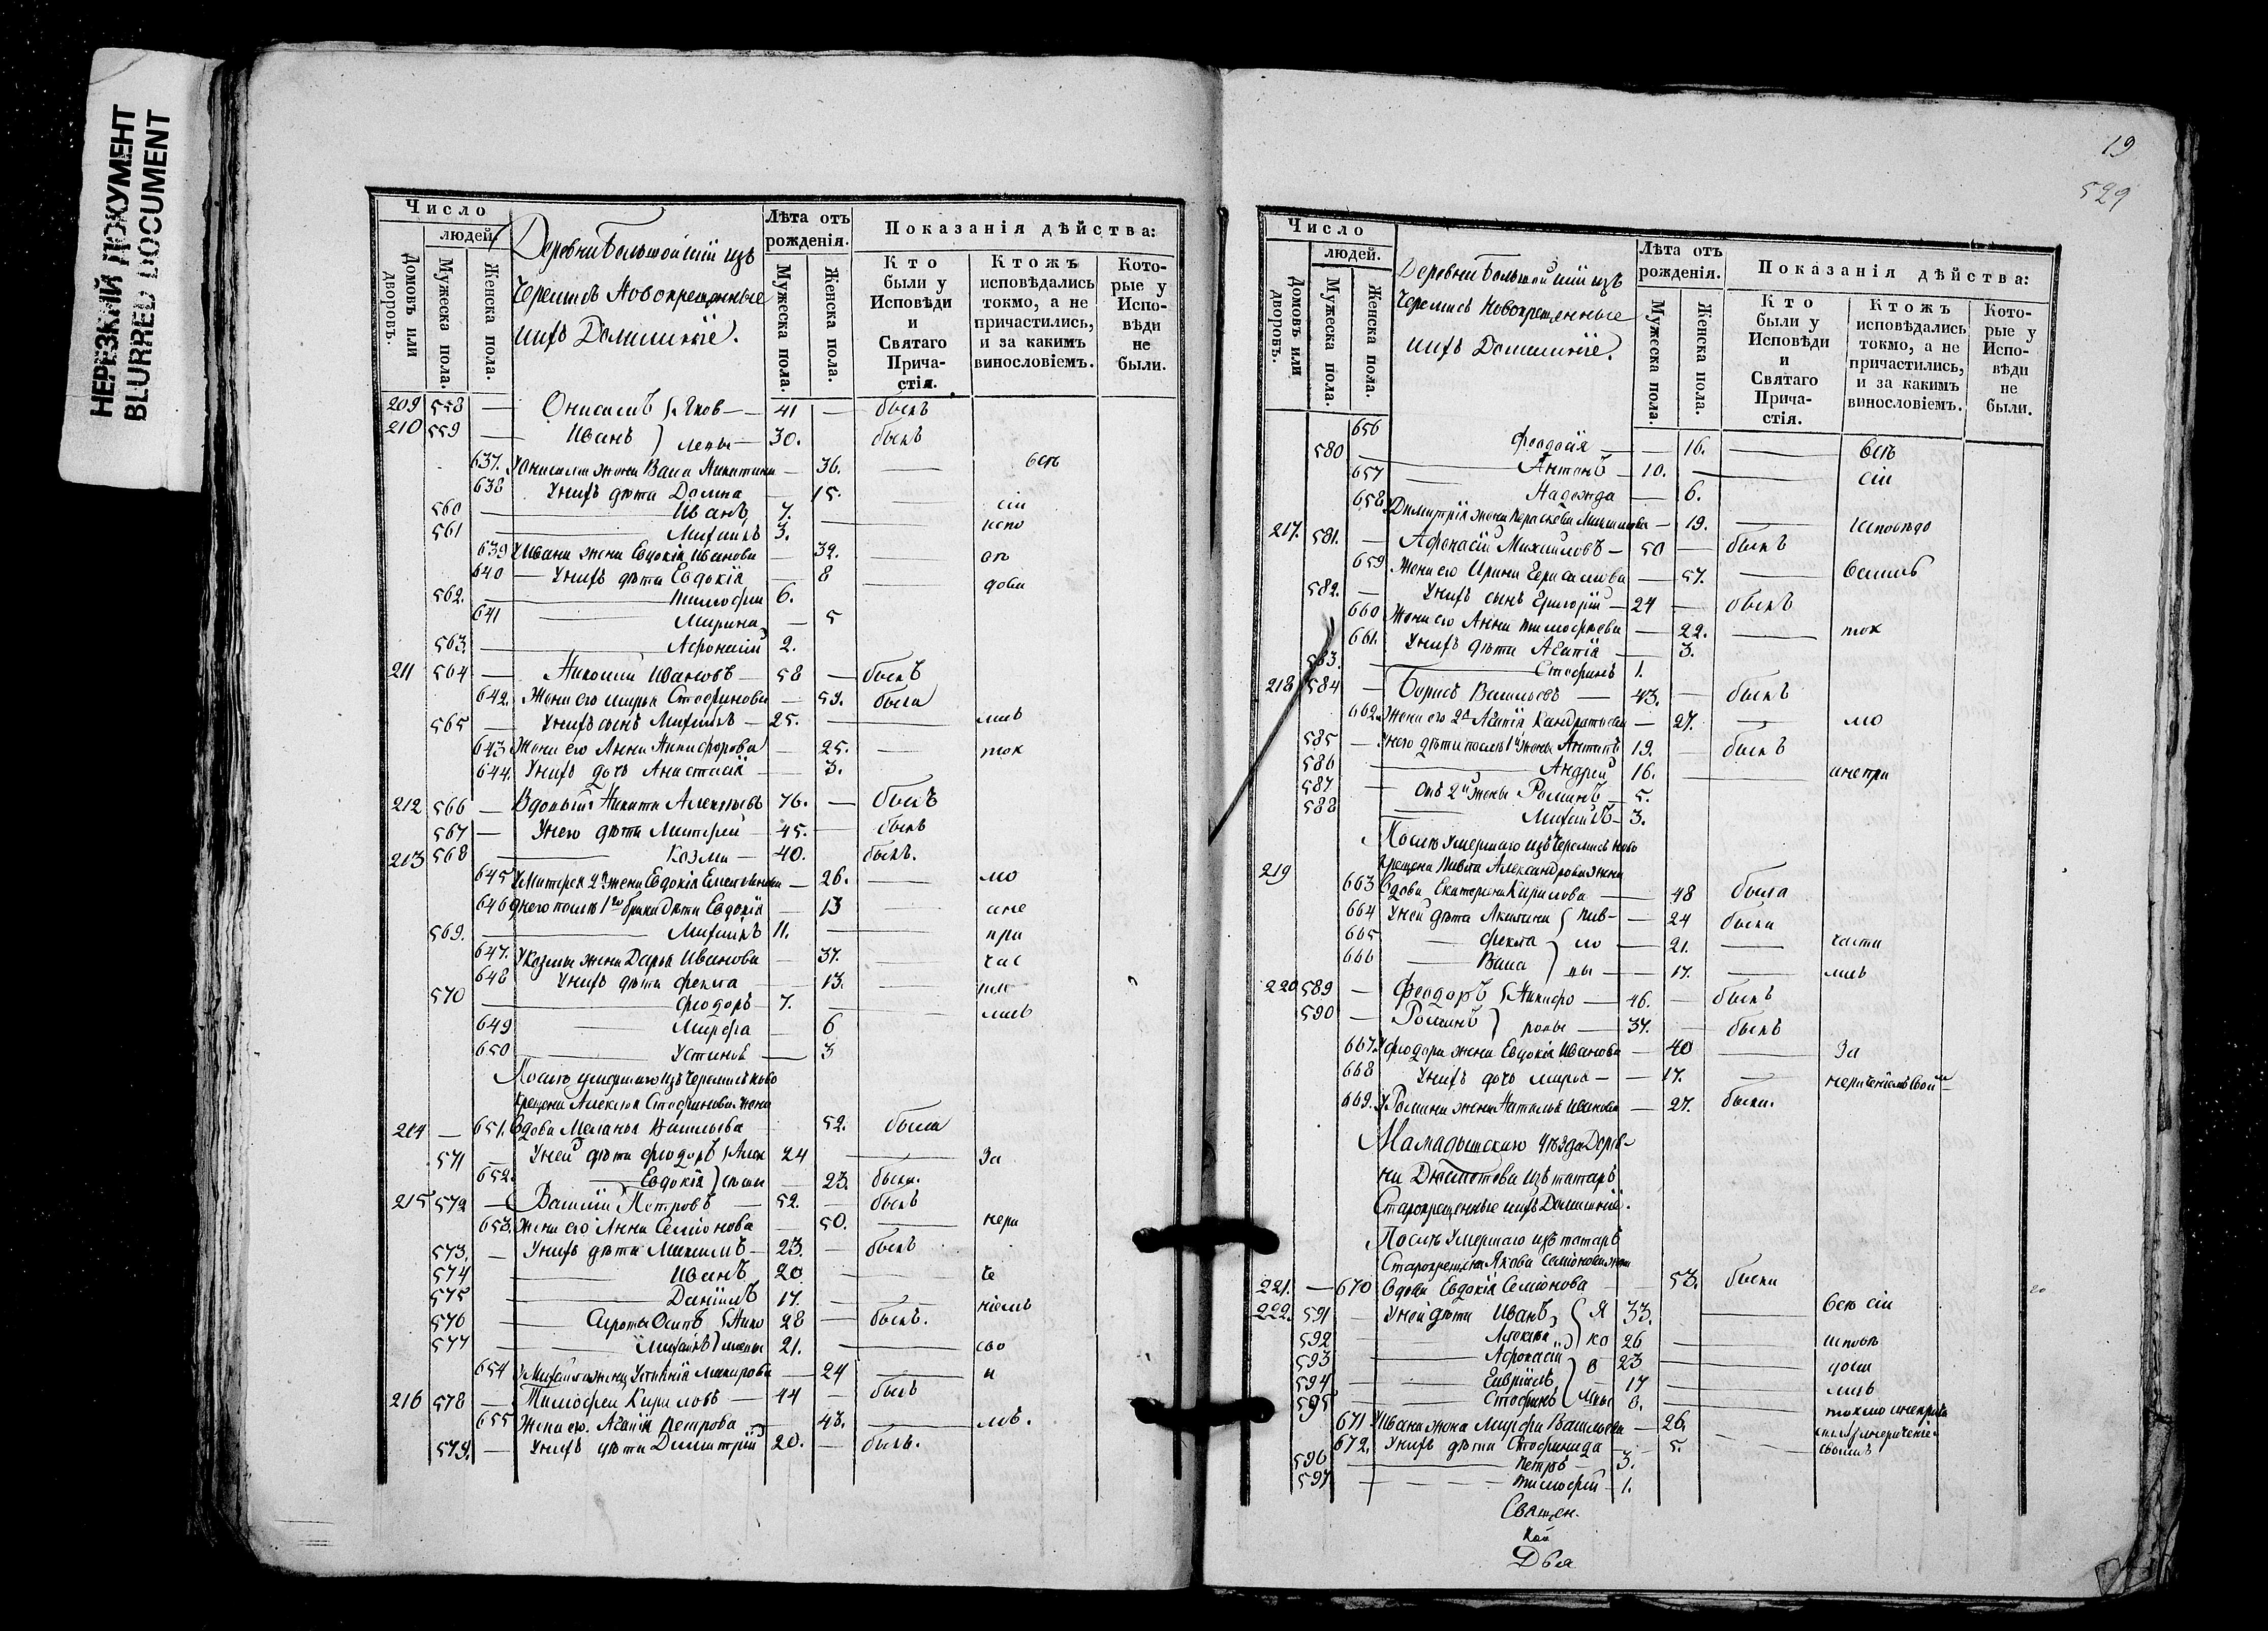 НЕРЕЗКИЙ ДОКУМЕНТ
BLURRED DOCUMENT
Число
людей.
Домовъ или дворовъ.
Мужеска пола.
Женска пола.
Деревни Большой Шіи изъ
Черемисъ Новокрещенные
ихъ Домашніе.
Лѣта отъ рожденія.
Мужеска пола.
Женска пола.
Показанія дѣйства:
Кто были у Исповѣди и Святаго Причастія.
Ктожъ исповѣдались токмо, а не причастились, и за какимъ винословіемъ.
Которые у Исповѣди не были.
209 558 — Онисимъ Яков — 41 — былъ
210 559 — Иванъ левы — 30. былъ
637. У Онисима жена Васа Никитина — 36. —
638 У нихъ дѣти Домна — 15.
560 — Иванъ 7. сіи
561 — Михаилъ 3. испо
639 У Ивана жена Евдокія Иванова — 32.
640 — У нихъ дѣти Евдокія — 8
562. — Тимофей 6.
641 — Марина — 5
563. — Афонасій 2.
211 564 — Николай Ивановъ — 58 — былъ
642. Жена его Марья Стефанова — была
565 — У нихъ сынъ Михаилъ — 25. — лись
643 Жена его Анна Никифорова — 25. — ток
644. У нихъ дочь Анастасія — 3.
212 566 — Вдовый Никита Алексѣевъ 76. — былъ
567 — У него дѣти Матфей — 45. — былъ
213 568 — Козма — 40. былъ.
645 У Матфея 2я жена Евдокія Емельянова — 26. — мо
646 У него после 1го брака дѣти Евдокія — 13 — ане
569. — Михаилъ 11. — при
647. У Козмы жена Дарья Иванова — 37. — час
648 У нихъ дѣти Фекла — 13.
570 — Феодоръ 7. — лись
649 — Марфа — 6
650 — Устинья — 3
После умершаго изъ Черемисъ ново
крещена Алексея Стефанова жена
214 — 651. вдова Меланья Васильева 52. была
571 — У ней дѣти Феодоръ Алек 24 — За
652. — Евдокія сѣевы — 23. была.
215 572 — Василій Петровъ — 52. — былъ
653. Жена его Анна Семіонова — 50. — нера
573. — У нихъ дѣти Максимъ — 23. — былъ
574 — Иванъ 20 — че
575 — Даніилъ 17. — ніемъ
576 — Сироты Осипъ Нико 28 — былъ.
577 — Михаилъ лаевы 21. — сво
654 У Михаила жена Устинія Макарова — 24 — и
216 578 — Тимофей Кириловъ — 44 — былъ
655 Жена его Агафія Петрова — — мъ.
579. — У нихъ дѣти Димитрій 20. — былъ.
19
529
Число
людей.
Домовъ или дворовъ.
Мужеска пола.
Женска пола.
Деревни Большой Шіи изъ
Черемисъ Новокрещенные
ихъ Домашніе.
Лѣта отъ рожденія.
Мужеска пола.
Женска пола.
Показанія дѣйства:
Кто были у Исповѣди и Святаго Причастія.
Ктожъ исповѣдались токмо, а не причастились, и за какимъ винословіемъ.
Которые у Исповѣди не были.
656 Феодосія — 16. — всѣ
580 — Антонъ — 10. — сіи
657 — Надежда — 6.
658 Димитрія жена Параскева — 19. — исповѣдо
217. 581. — Афонасій Михаиловъ — 50 — былъ
659 Жена его Ирина Герасимова — 57. — вались
582. — У нихъ сынъ Григорій — 24 — былъ
660 Жена его Анна Тимофеева — 22. — ток
661. У нихъ дѣти Агафія — 3.
583. — Стефанъ 1.
218 584 — Борисъ Васильевъ — 43. — былъ
662. Жена его 2я Агафія Кандратьева — 27. — мо
585 — У него дѣти после 1й жены Антипъ 19. — былъ
586 — Андрей 16. — анепри
587 — отъ 2й жены Романъ — 5.
588 — Михаилъ — 3.
После Умершаго изъ Черемисъ ново
крещена Павла Александрова жена
219 663 вдова Екатерина Кирилова — 48 была
664 У ней дѣти Акилина Пав — 24 была
665 — Фекла ло — 21. — части
666 — Васа вы — 17. — лись
220 589 — Феодоръ Никифо — 46. — былъ
590 — Романъ ровы — 37. — былъ
667. У Феодора жена Евдокія Иванова — 40 — За
668 У нихъ дочь Марья — 17. — нераченіемъ свои
669. У Романа жена Наталья Иванова — 27. была.
Мамадышскаго уѣзда Дерев
ни изъ татаръ
Старокрещенные ихъ Домашніе.
После Умершаго изъ татаръ
Старокрещена Якова Семіонова жена
221. — 670 вдова Евдокія Семіонова — 53. была
222. 591 — У ней дѣти Иванъ Я 33. — всю сіи
592 — Алексѣй ко 26 — исповѣ
593 — Афонасій в 23 — дова
594 — Гавріилъ — 17 — лись
595 — Стефанъ левы 8. — токмо анеприча
671 У Ивана жена Марфа Васильева — 26.
672. У нихъ дѣти Стефанида — 5. своимъ
596 — Петръ — 3.
597 — Тимофей — 1.
Священ.
Кой
Дья